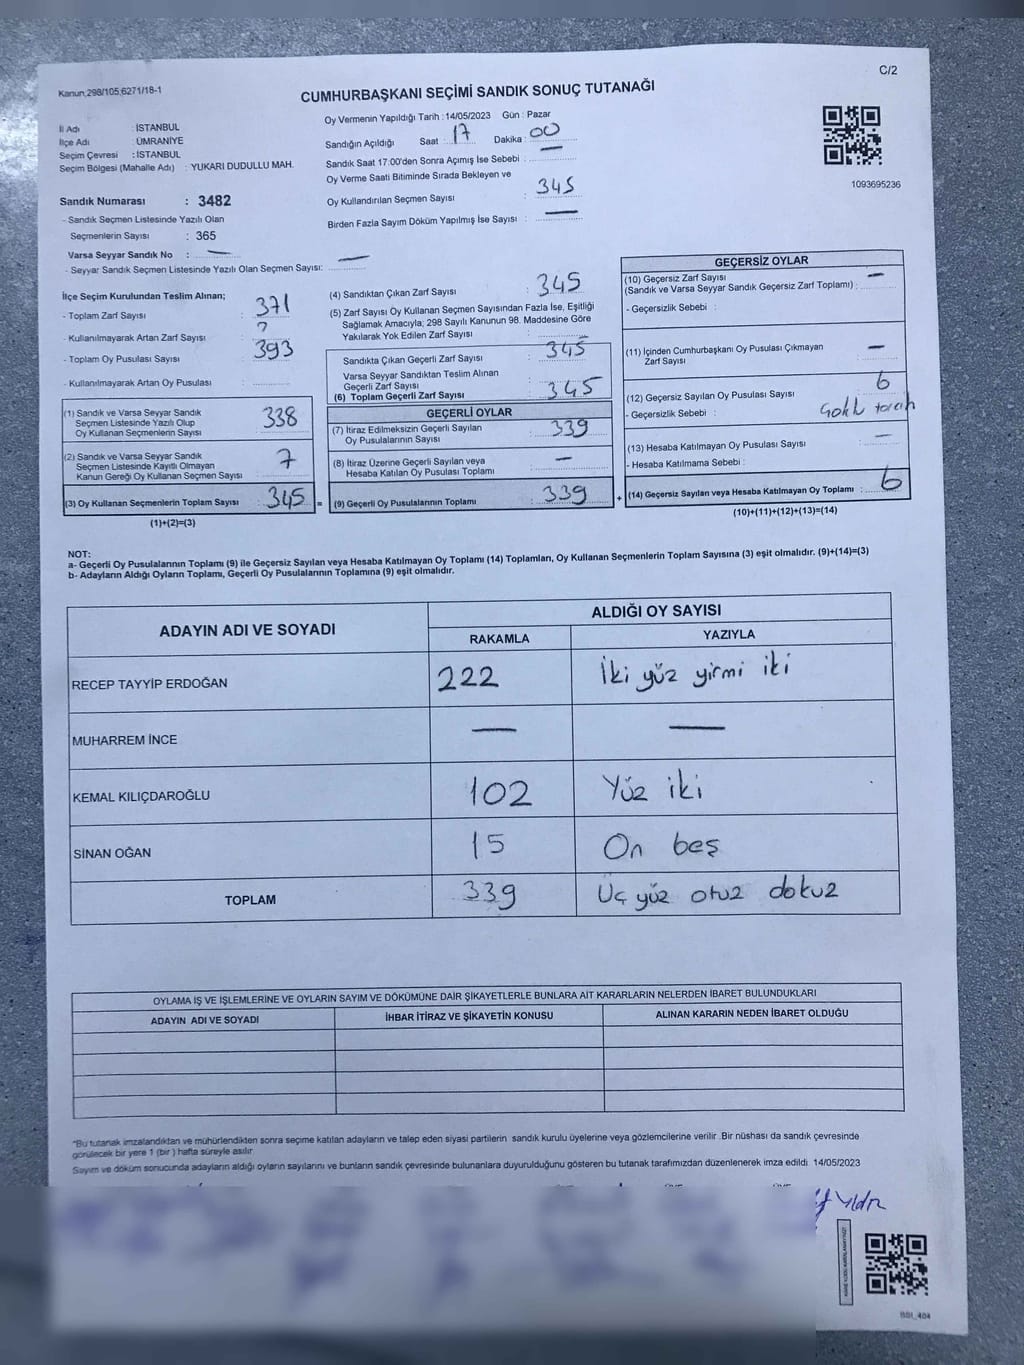 C/2
Kanun 298/105,6271/18-1
CUMHURBAŞKANI SEÇİMİ SANDIK SONUÇ TUTANAĞI
İl Adı : İSTANBUL
İlçe Adı : ÜMRANİYE
Seçim Çevresi : İSTANBUL
Seçim Bölgesi (Mahalle Adı) : YUKARI DUDULLU MAH.
Sandık Numarası : 3482
- Sandık Seçmen Listesinde Yazılı Olan
Seçmenlerin Sayısı : 365
Varsa Seyyar Sandık No : —
- Seyyar Sandık Seçmen Listesinde Yazılı Olan Seçmen Sayısı: —
Oy Vermenin Yapıldığı Tarih : 14/05/2023 Gün : Pazar
Sandığın Açıldığı Saat : 17 Dakika : 00
Sandık Saat 17:00'den Sonra Açımış İse Sebebi : —
Oy Verme Saati Bitiminde Sırada Bekleyen ve
Oy Kullandırılan Seçmen Sayısı : 345
Birden Fazla Sayım Döküm Yapılmış İse Sayısı : —
1093695236
İlçe Seçim Kurulundan Teslim Alınan;
- Toplam Zarf Sayısı : 371
- Kullanılmayarak Artan Zarf Sayısı :
- Toplam Oy Pusulası Sayısı : 393
- Kullanılmayarak Artan Oy Pusulası :
(1) Sandık ve Varsa Seyyar Sandık
Seçmen Listesinde Yazılı Olup
Oy Kullanan Seçmenlerin Sayısı : 338
(2) Sandık ve Varsa Seyyar Sandık
Seçmen Listesinde Kayıtlı Olmayan
Kanun Gereği Oy Kullanan Seçmen Sayısı : 7
(3) Oy Kullanan Seçmenlerin Toplam Sayısı : 345 =
(1)+(2)=(3)
(4) Sandıktan Çıkan Zarf Sayısı : 345
(5) Zarf Sayısı Oy Kullanan Seçmen Sayısından Fazla İse, Eşitliği
Sağlamak Amacıyla; 298 Sayılı Kanunun 98. Maddesine Göre
Yakılarak Yok Edilen Zarf Sayısı :
Sandıkta Çıkan Geçerli Zarf Sayısı : 345
Varsa Seyyar Sandıktan Teslim Alınan
Geçerli Zarf Sayısı :
(6) Toplam Geçerli Zarf Sayısı : 345
GEÇERLİ OYLAR
(7) İtiraz Edilmeksizin Geçerli Sayılan
Oy Pusulalarının Sayısı : 339
(8) İtiraz Üzerine Geçerli Sayılan veya
Hesaba Katılan Oy Pusulası Toplamı : —
(9) Geçerli Oy Pusulalarının Toplamı : 339 +
GEÇERSİZ OYLAR
(10) Geçersiz Zarf Sayısı
(Sandık ve Varsa Seyyar Sandık Geçersiz Zarf Toplamı) : —
- Geçersizlik Sebebi :
(11) İçinden Cumhurbaşkanı Oy Pusulası Çıkmayan
Zarf Sayısı : —
(12) Geçersiz Sayılan Oy Pusulası Sayısı : 6
- Geçersizlik Sebebi :
(13) Hesaba Katılmayan Oy Pusulası Sayısı : —
- Hesaba Katılmama Sebebi :
(14) Geçersiz Sayılan veya Hesaba Katılmayan Oy Toplamı : 6
(10)+(11)+(12)+(13)=(14)
NOT:
a- Geçerli Oy Pusulalarının Toplamı (9) ile Geçersiz Sayılan veya Hesaba Katılmayan Oy Toplamı (14) Toplamları, Oy Kullanan Seçmenlerin Toplam Sayısına (3) eşit olmalıdır. (9)+(14)=(3)
b- Adayların Aldığı Oyların Toplamı, Geçerli Oy Pusulalarının Toplamına (9) eşit olmalıdır.
ADAYIN ADI VE SOYADI ALDIĞI OY SAYISI
RAKAMLA YAZIYLA
RECEP TAYYİP ERDOĞAN 222 İki yüz yirmi iki
MUHARREM İNCE — —
KEMAL KILIÇDAROĞLU 102 Yüz iki
SİNAN OĞAN 15 On beş
TOPLAM 339 Üç yüz otuz dokuz
OYLAMA İŞ VE İŞLEMLERİNE VE OYLARIN SAYIM VE DÖKÜMÜNE DAİR ŞİKAYETLERLE BUNLARA AİT KARARLARIN NELERDEN İBARET BULUNDUKLARI
ADAYIN ADI VE SOYADI İHBAR İTİRAZ VE ŞİKAYETİN KONUSU ALINAN KARARIN NEDEN İBARET OLDUĞU
"Bu tutanak imzalandıktan ve mühürlendikten sonra seçime katılan adayların ve talep eden siyasi partilerin sandık kurulu üyelerine veya gözlemcilerine verilir .Bir nüshası da sandık çevresinde
görülecek bir yere 1 (bir ) hafta süreyle asılır
Sayım ve döküm sonucunda adayların aldığı oyların sayılarını ve bunların sandık çevresinde bulunanlara duyurulduğunu gösteren bu tutanak tarafımızdan düzenlenerek imza edildi 14/05/2023